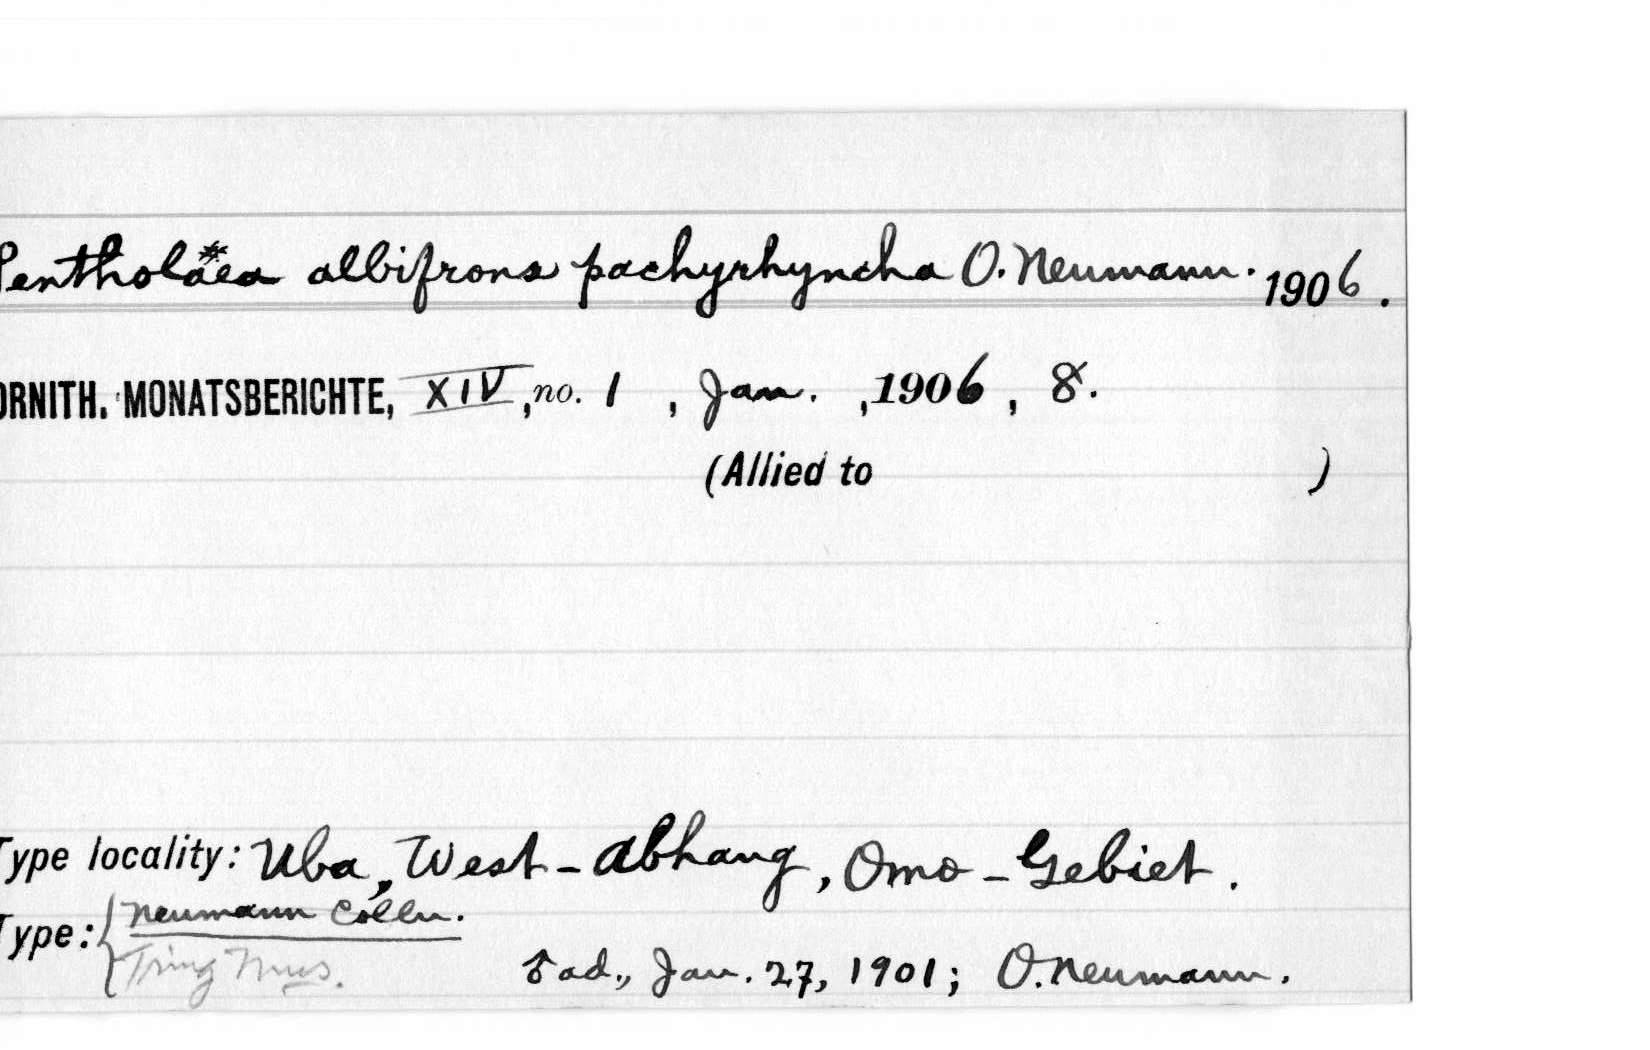 Pentholäea albifrons pachyrhyncha O. Neumann. 1906.
ORNITH. MONATSBERICHTE, XIV, no. 1, Jan., 1906, 8.
(Allied to )
Type locality: Uba, West-Abhang, Omo-Gebiet.
Type: { Neumann Colln.
Tring Mus. ♂ ad., Jan. 27, 1901; O. Neumann.